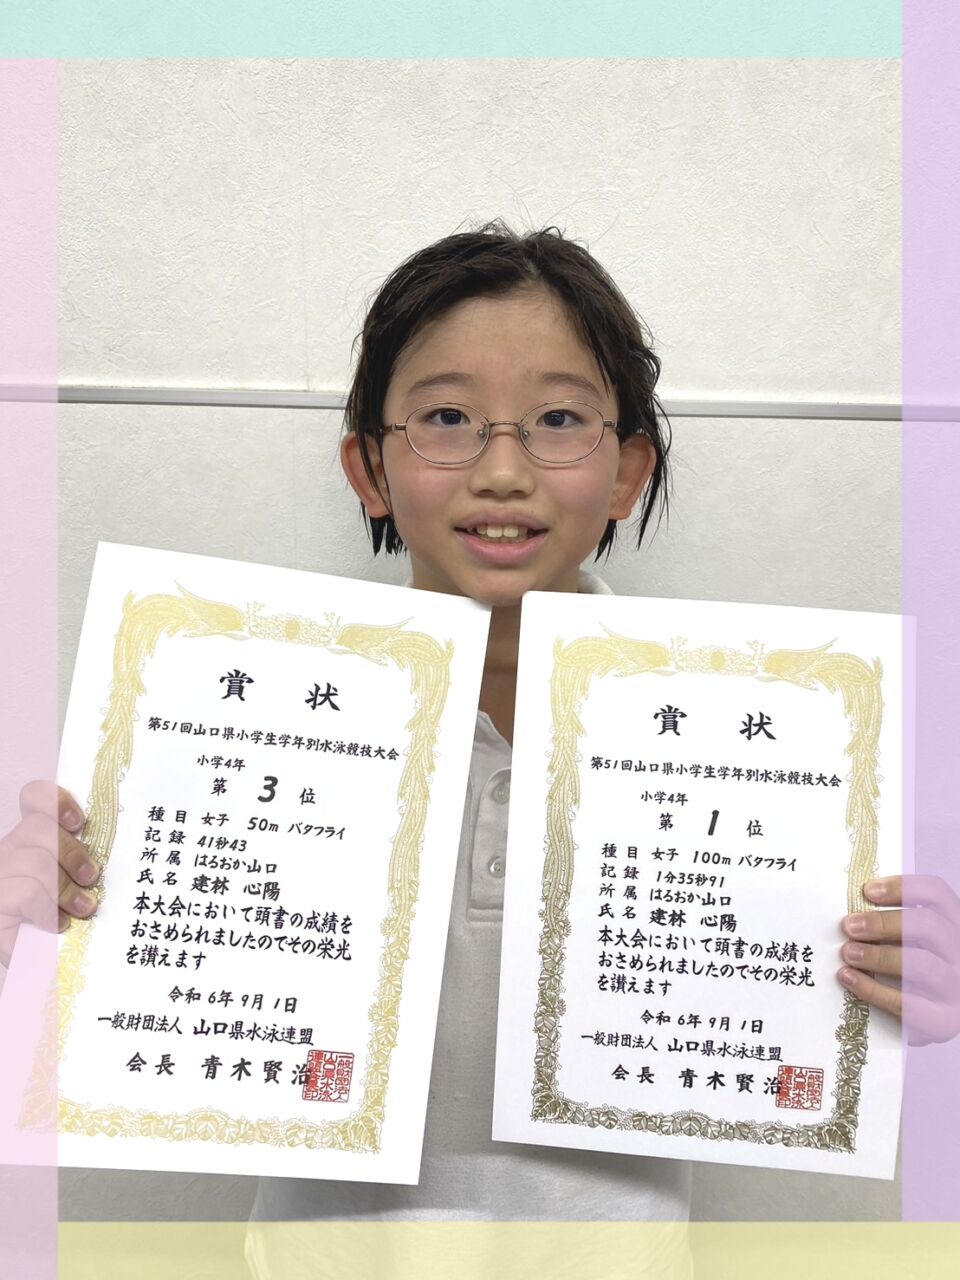 賞 状
第51回山口県小学生学年別水泳競技大会
小学4年
第 3 位
種目 女子 50m バタフライ
記録 41秒43
所属 はるおか山口
氏名 建林 心陽
本大会において頭書の成績を
おさめられましたのでその栄光
を讃えます
令和 6年 9月 1日
一般財団法人 山口県水泳連盟
会長 青木賢治
賞 状
第51回山口県小学生学年別水泳競技大会
小学4年
第 1 位
種目 女子 100m バタフライ
記録 1分35秒91
所属 はるおか山口
氏名 建林 心陽
本大会において頭書の成績を
おさめられましたのでその栄光
を讃えます
令和 6年 9月 1日
一般財団法人 山口県水泳連盟
会長 青木賢治